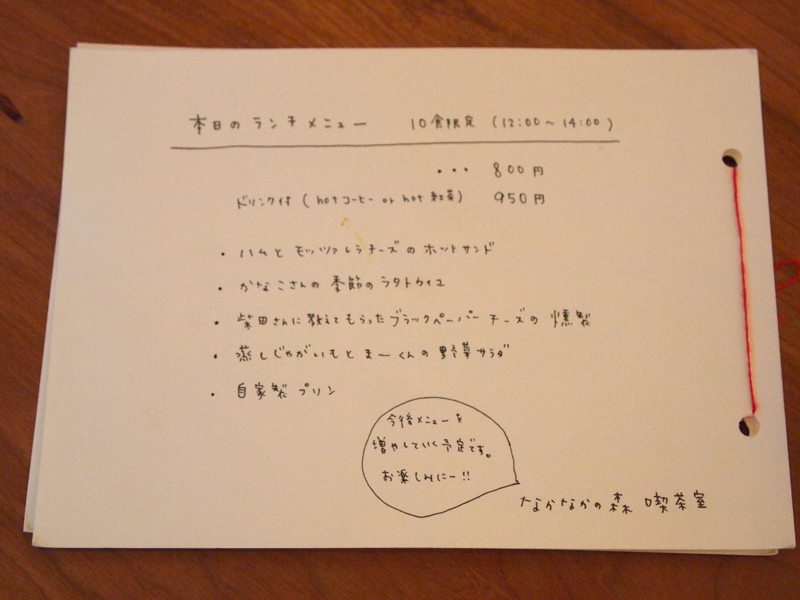 本日のランチメニュー 10食限定 (12:00〜14:00)
・・・ 800円
ドリンク付 (hotコーヒー or hot 紅茶) 950円
・ハムとモッツァレラチーズのホットサンド
・かなこさんの季節のラタトゥイユ
・柴田さんに教えてもらったブラックペーパーチーズの燻製
・蒸しじゃがいもとまーくんの野菜サラダ
・自家製プリン
今後メニューを
増やしていく予定です。
お楽しみにー!!
なかなかの森 喫茶室